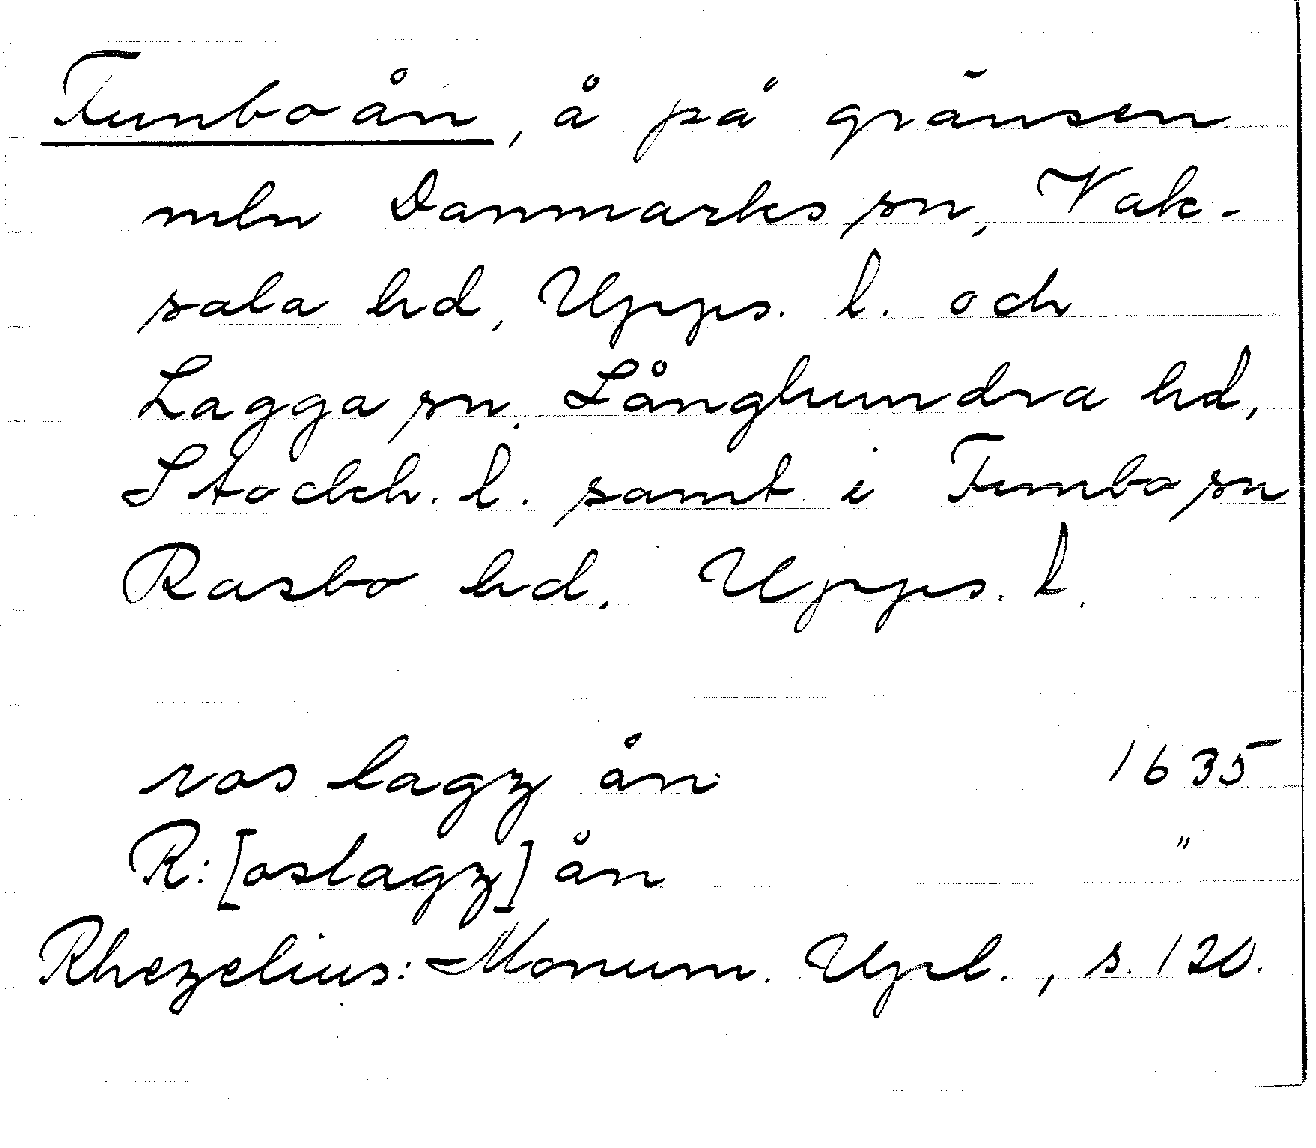 Funboån, å på gränsen
mln Danmarks sn, Vak-
sala hd, Upps. l. och
Lagga sn, Långhundra hd,
Stockh. l. samt i Funbo sn
Rasbo hd. Upps. l.
ros lagz ån 1635
R:[oslagz] ån "
Rhezelius: Monum. Upl., s. 120.